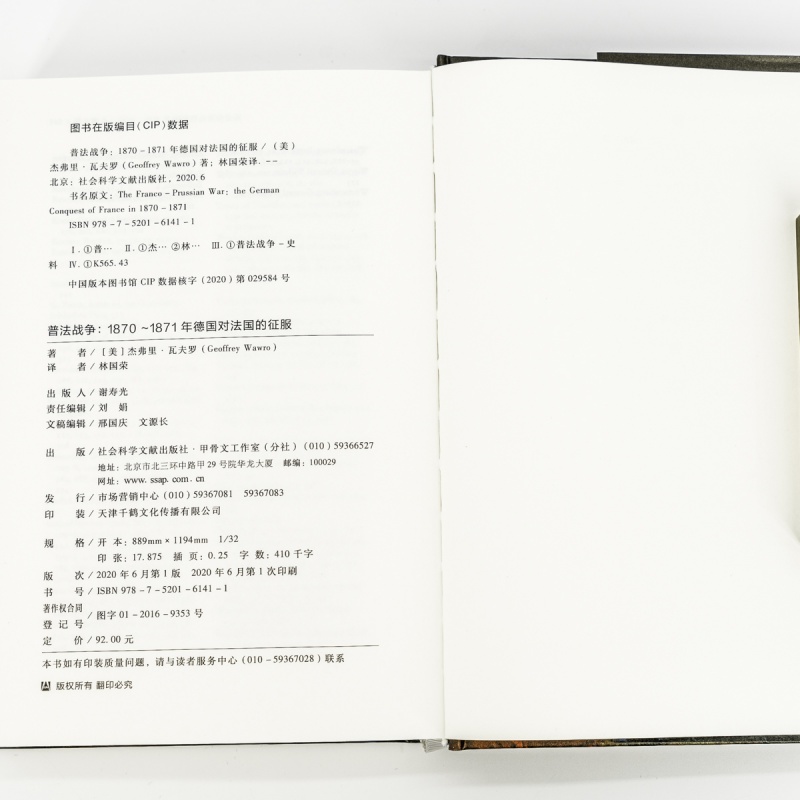 图书在版编目(CIP)数据
普法战争：1870－1871 年德国对法国的征服 /（美）
杰弗里·瓦夫罗（Geoffrey Wawro）著；林国荣译. --
北京：社会科学文献出版社，2020.6
书名原文：The Franco－Prussian War: the German
Conquest of France in 1870－1871
ISBN 978－7－5201－6141－1
Ⅰ.①普… Ⅱ.①杰… ②林… Ⅲ.①普法战争－史
料 Ⅳ.①K565.43
中国版本图书馆 CIP 数据核字（2020）第 029584 号
普法战争：1870～1871 年德国对法国的征服
著 者 /［美］杰弗里·瓦夫罗（Geoffrey Wawro）
译 者 / 林国荣
出 版 人 / 谢寿光
责任编辑 / 刘 娟
文稿编辑 / 邢国庆 文源长
出 版 / 社会科学文献出版社·甲骨文工作室（分社）（010）59366527
地址：北京市北三环中路甲 29 号院华龙大厦 邮编：100029
网址：www.ssap.com.cn
发 行 / 市场营销中心（010）59367081 59367083
印 装 / 天津千鹤文化传播有限公司
规 格 / 开 本：889mm×1194mm 1/32
印 张：17.875 插 页：0.25 字 数：410 千字
版 次 / 2020 年 6 月第 1 版 2020 年 6 月第 1 次印刷
书 号 / ISBN 978－7－5201－6141－1
著作权合同
登 记 号 / 图字 01－2016－9353 号
定 价 / 92.00 元
本书如有印装质量问题，请与读者服务中心（010－59367028）联系
版权所有 翻印必究